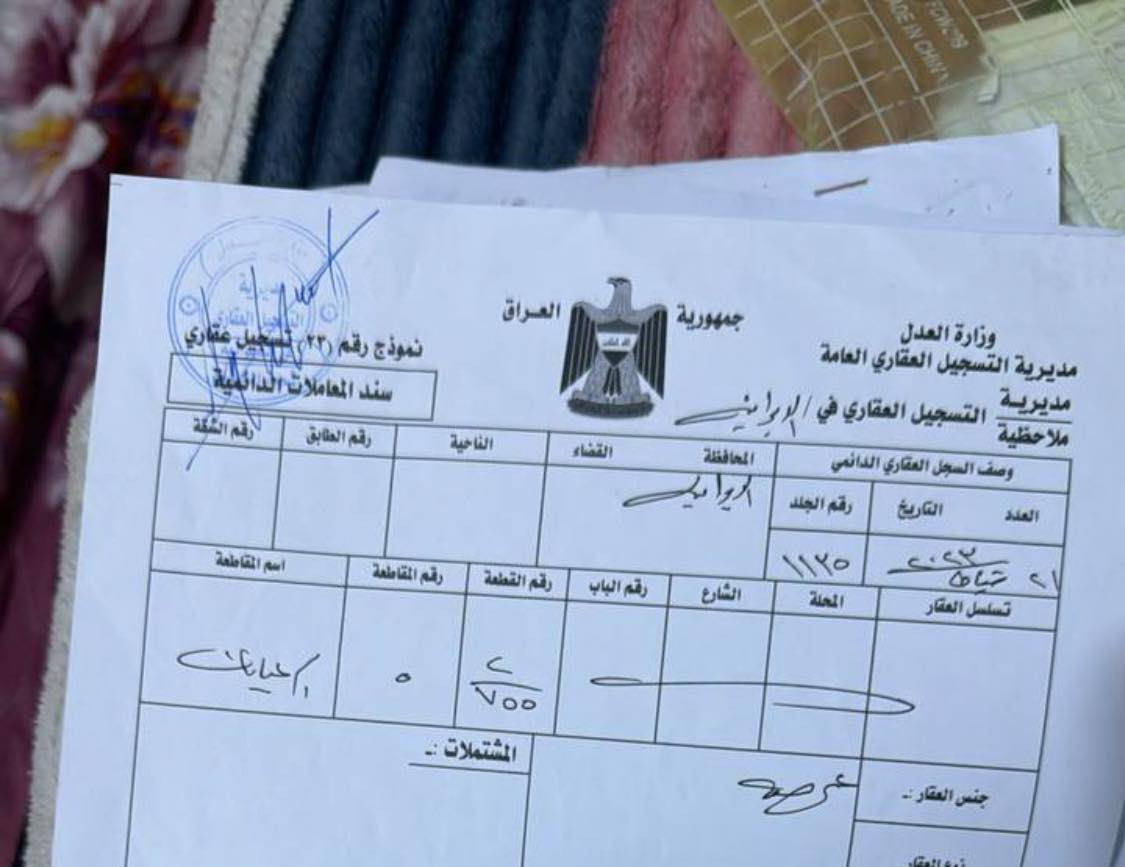 MADE IN CHINA
جمهورية العراق
وزارة العدل
مديرية التسجيل العقاري العامة
مديرية
ملاحظية
التسجيل العقاري في /
نموذج رقم (٢٣) تسجيل عقاري
سند المعاملات الدائمية
مديرية
التسجيل العقاري
وصف السجل العقاري الدائمي
المحافظة القضاء
الناحية
رقم الطابق
رقم الشقة
العدد التاريخ
رقم الجلد
٢١ شباط ٢٠٢٣
١١٣٥
تسلسل العقار
المحلة
الشارع
رقم الباب
رقم القطعة
رقم المقاطعة
اسم المقاطعة
٢/٧٥٥
٥
جنس العقار :ـ
عرصة
المشتملات :ـ
نوع العقار